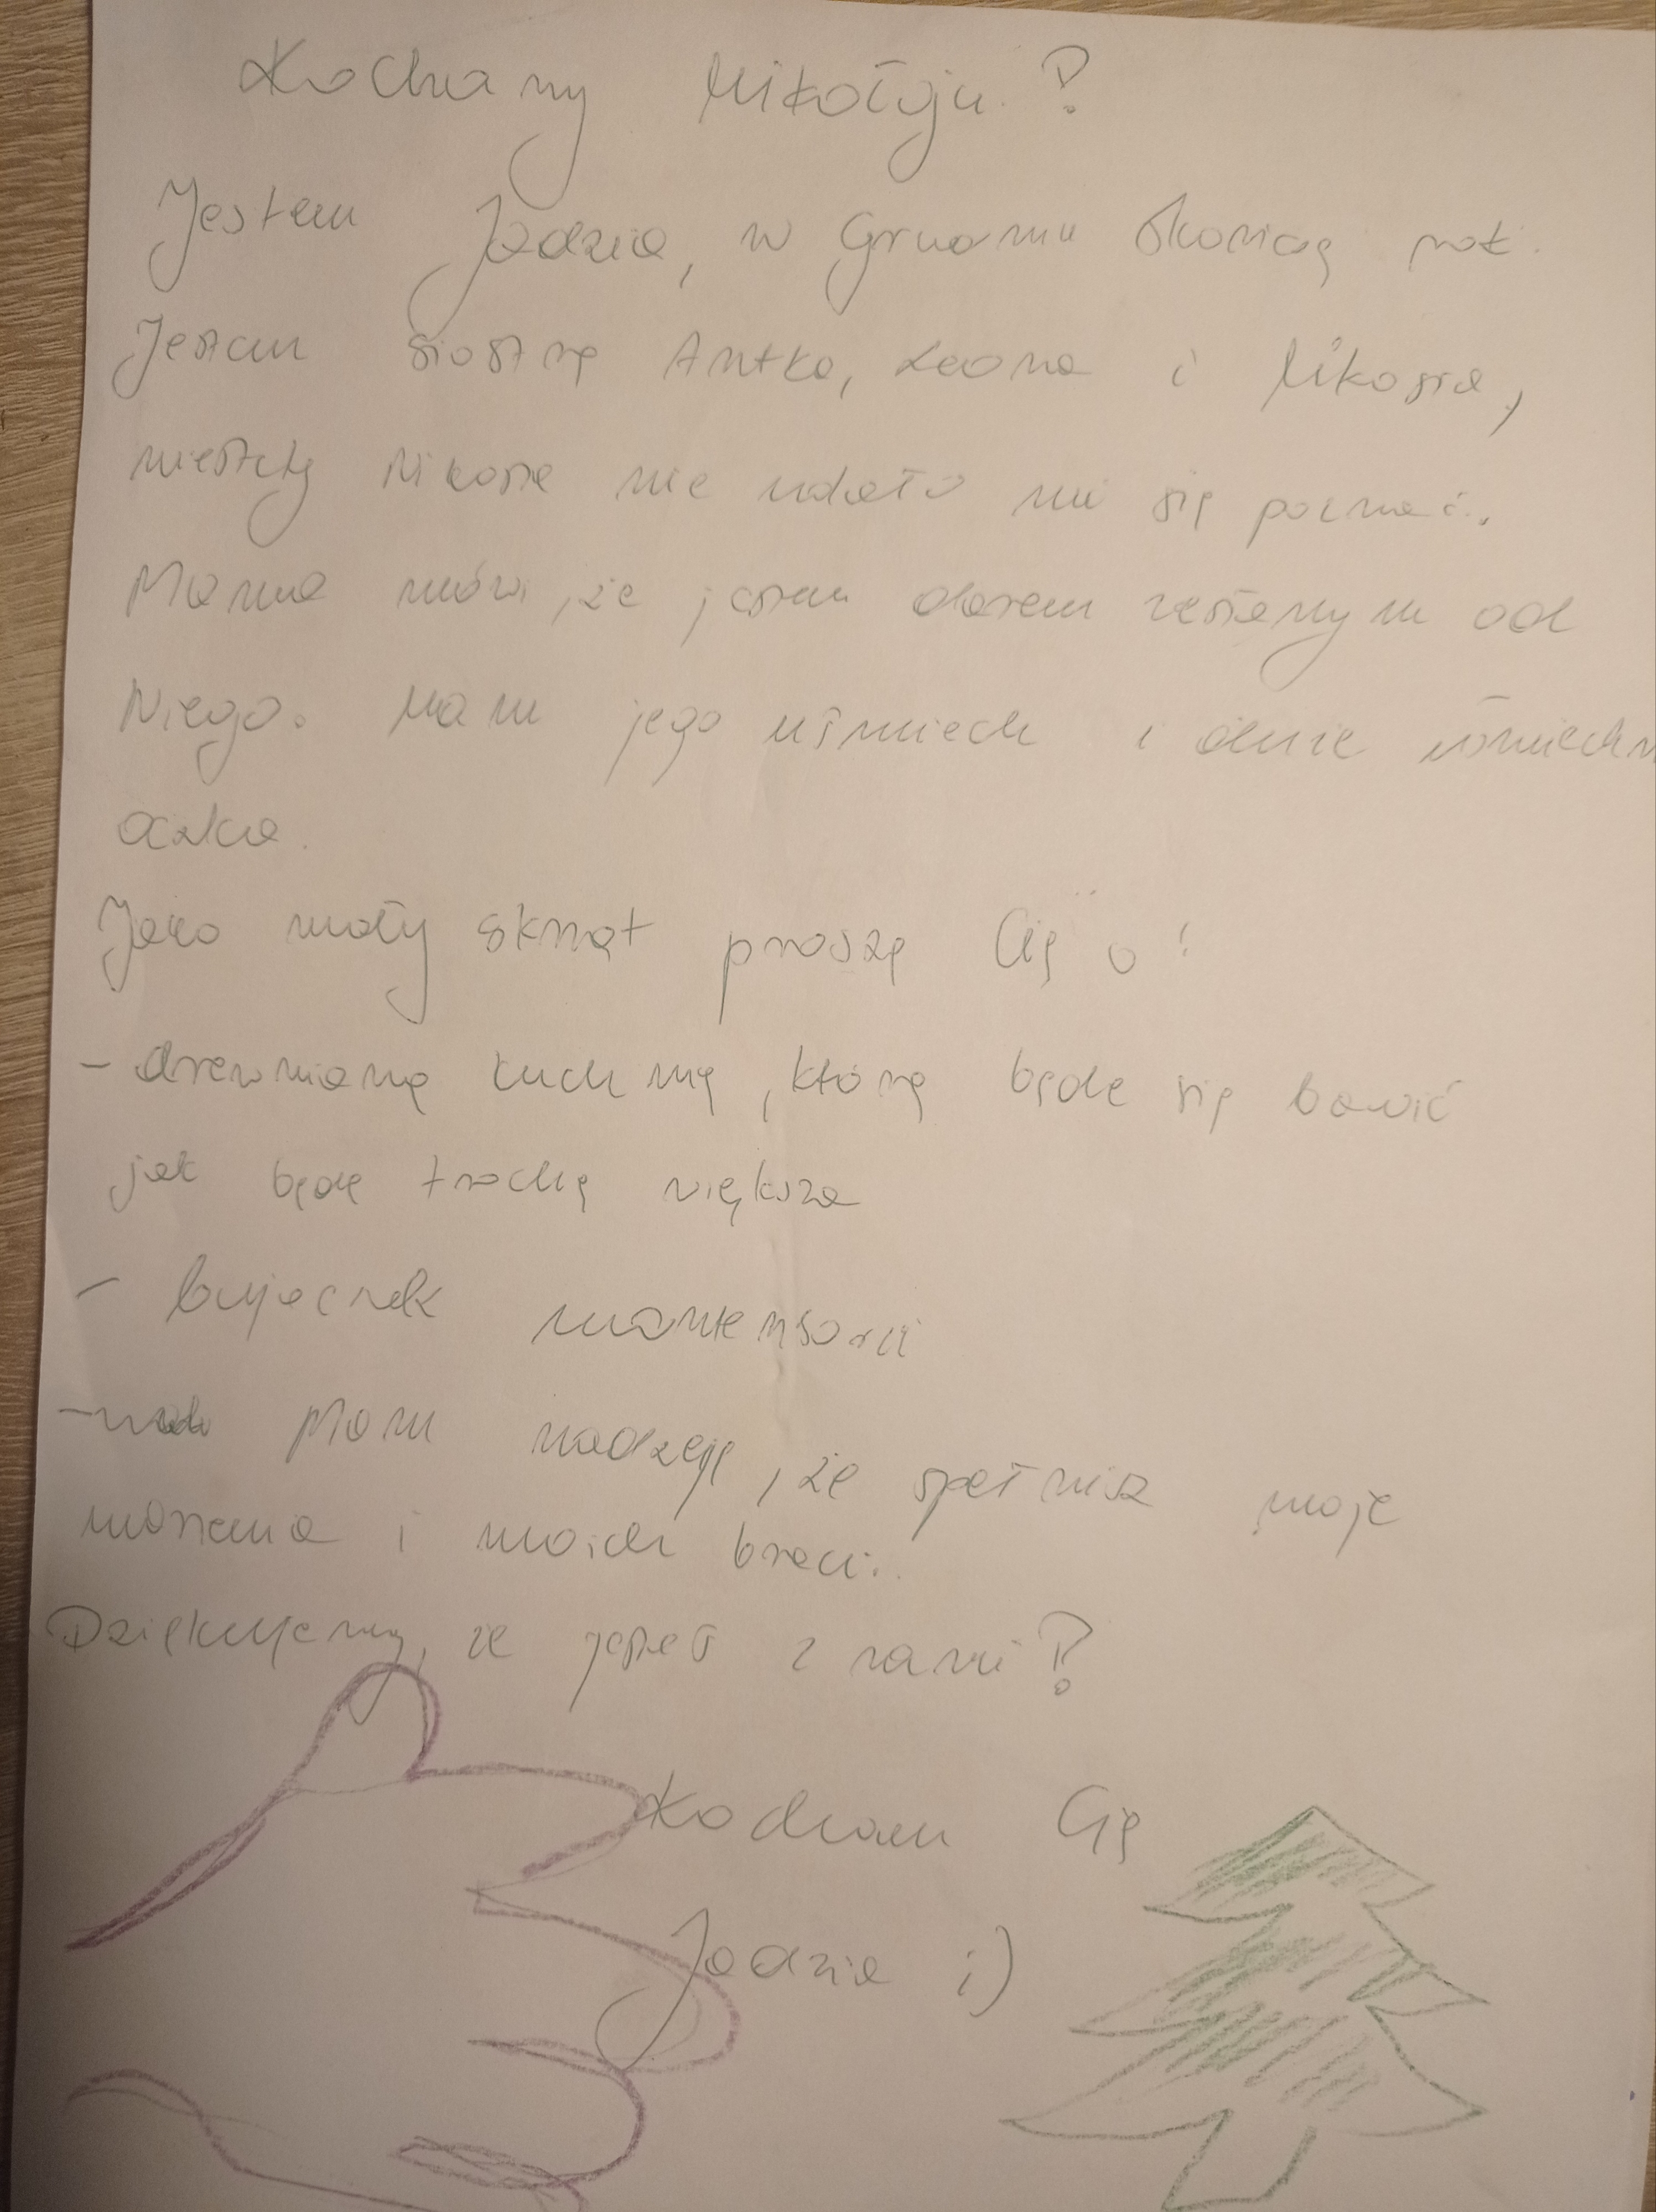 Kochany Mikołaju!
Jestem Jadzia, w Grudniu skończę rok.
Jestem siostrą Antka, Leona i Mikosia,
niestety Mikosia nie udało mi się poznać.
Mama mówi, że jestem darem zesłanym od
Niego. Mam jego uśmiech i duże
oczka.
Jako mały skrzat proszę Cię o:
- drewnianą kuchnię, którą będę się bawić
jak będę trochę większa
- bujaczek montensorii
- Mam nadzieję, że spełnisz moje
marzenia i moich braci.
Dziękujemy, że jesteś z nami!
Kocham Cię
Jadzia ;)